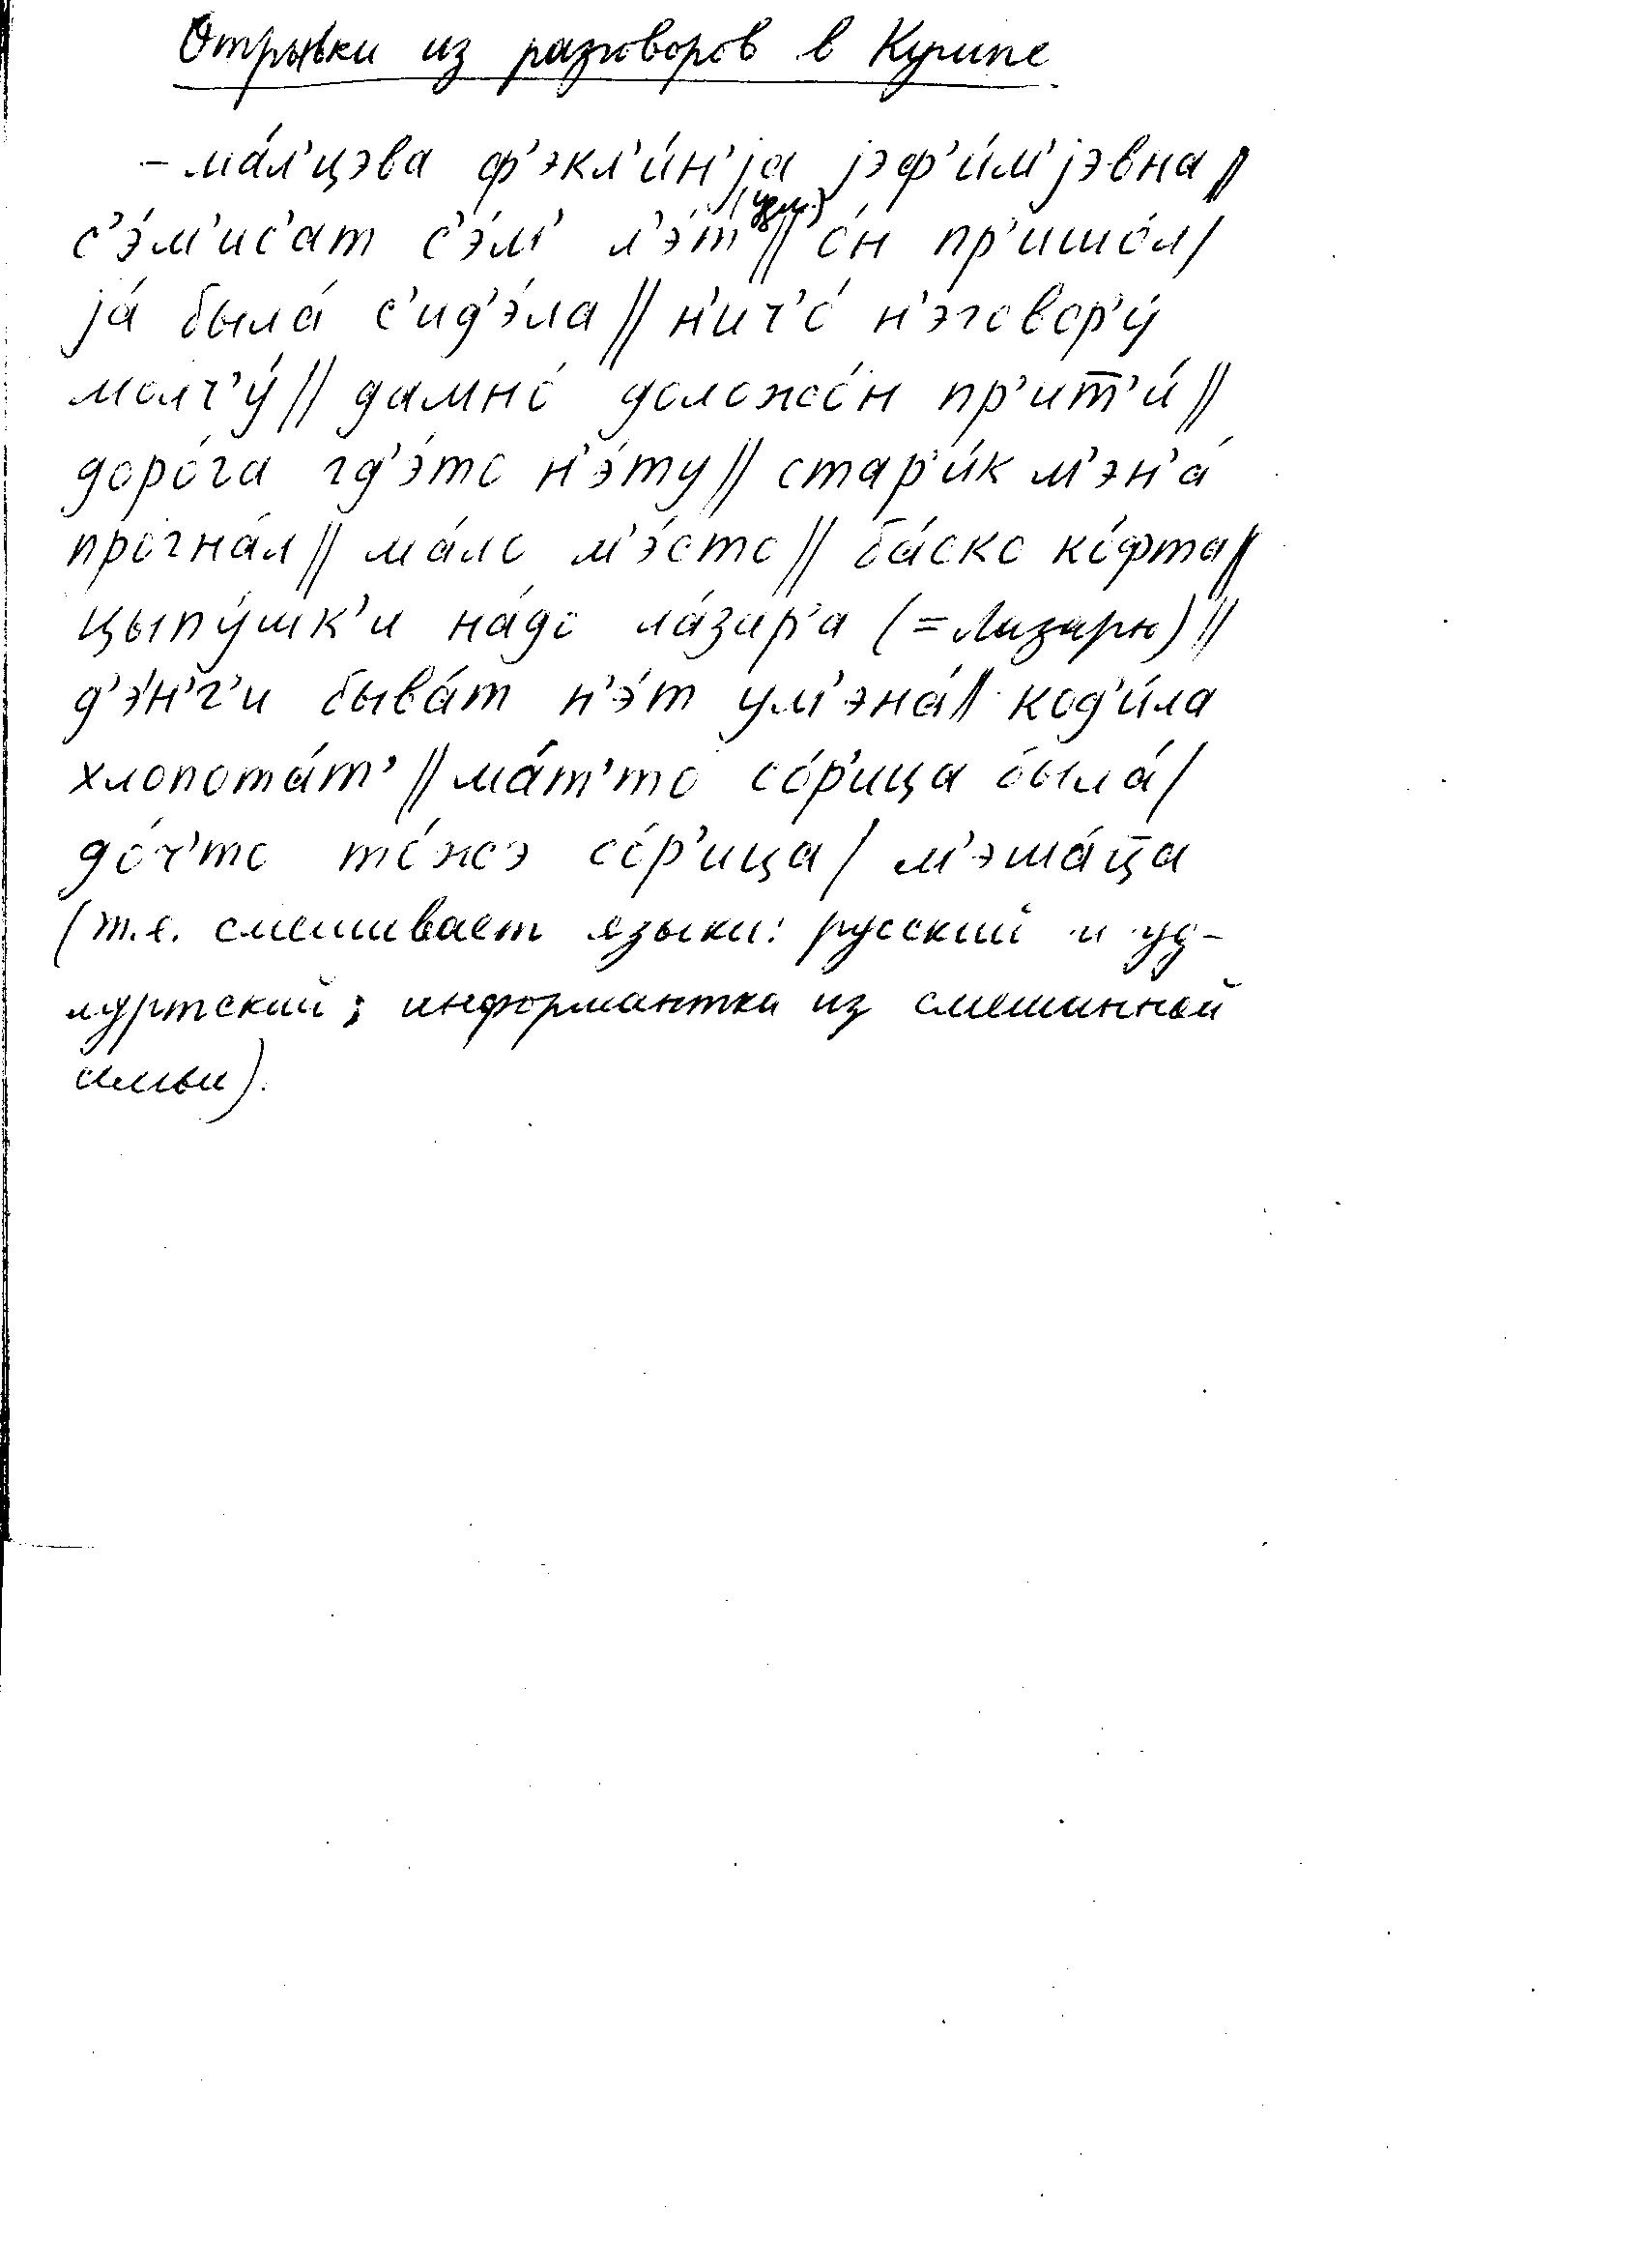 Отрывки из разговоров в Кулипе
– ма́л'цэва ф'экл'и́н'jа jэф'и́м'jэвна //
(удм.)
с'э́м'ис'ат с'э́м' л'э́т // о́н пр'ишо́л /
jа́ была́ с'ид'э́ла // н'ич'о́ н'эговор'у́
молч'у́ // дамно́ доложо́н пр'ит̄'и́ //
доро́га гд'э́то н'э́ту // стар'и́к м'эн'а́
прогна́л // ма́ло м'э́сто // ба́ско ко́фта //
цыпу́шк'и на́до ла́зир'а (= Лазарь) //
д'э́н'г'и быва́т н'э́т ум'эна́ // код'и́ла
хлопота́т' // ма́т'то со́р'ица была́ /
до́ч'то то́жэ со́р'ица / м'эша́ц̄а
(т.е. смешивает языки: русский и уд-
муртский; информантка из смешанной
семьи).